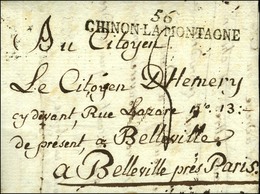 56
CHINON-LA MONTAGNE
Au Citoyen
Le Citoyen D'Hemery
cy devant, Rue Lazare N.º 13:
de présent, a Belleville
a Belleville prés Paris.